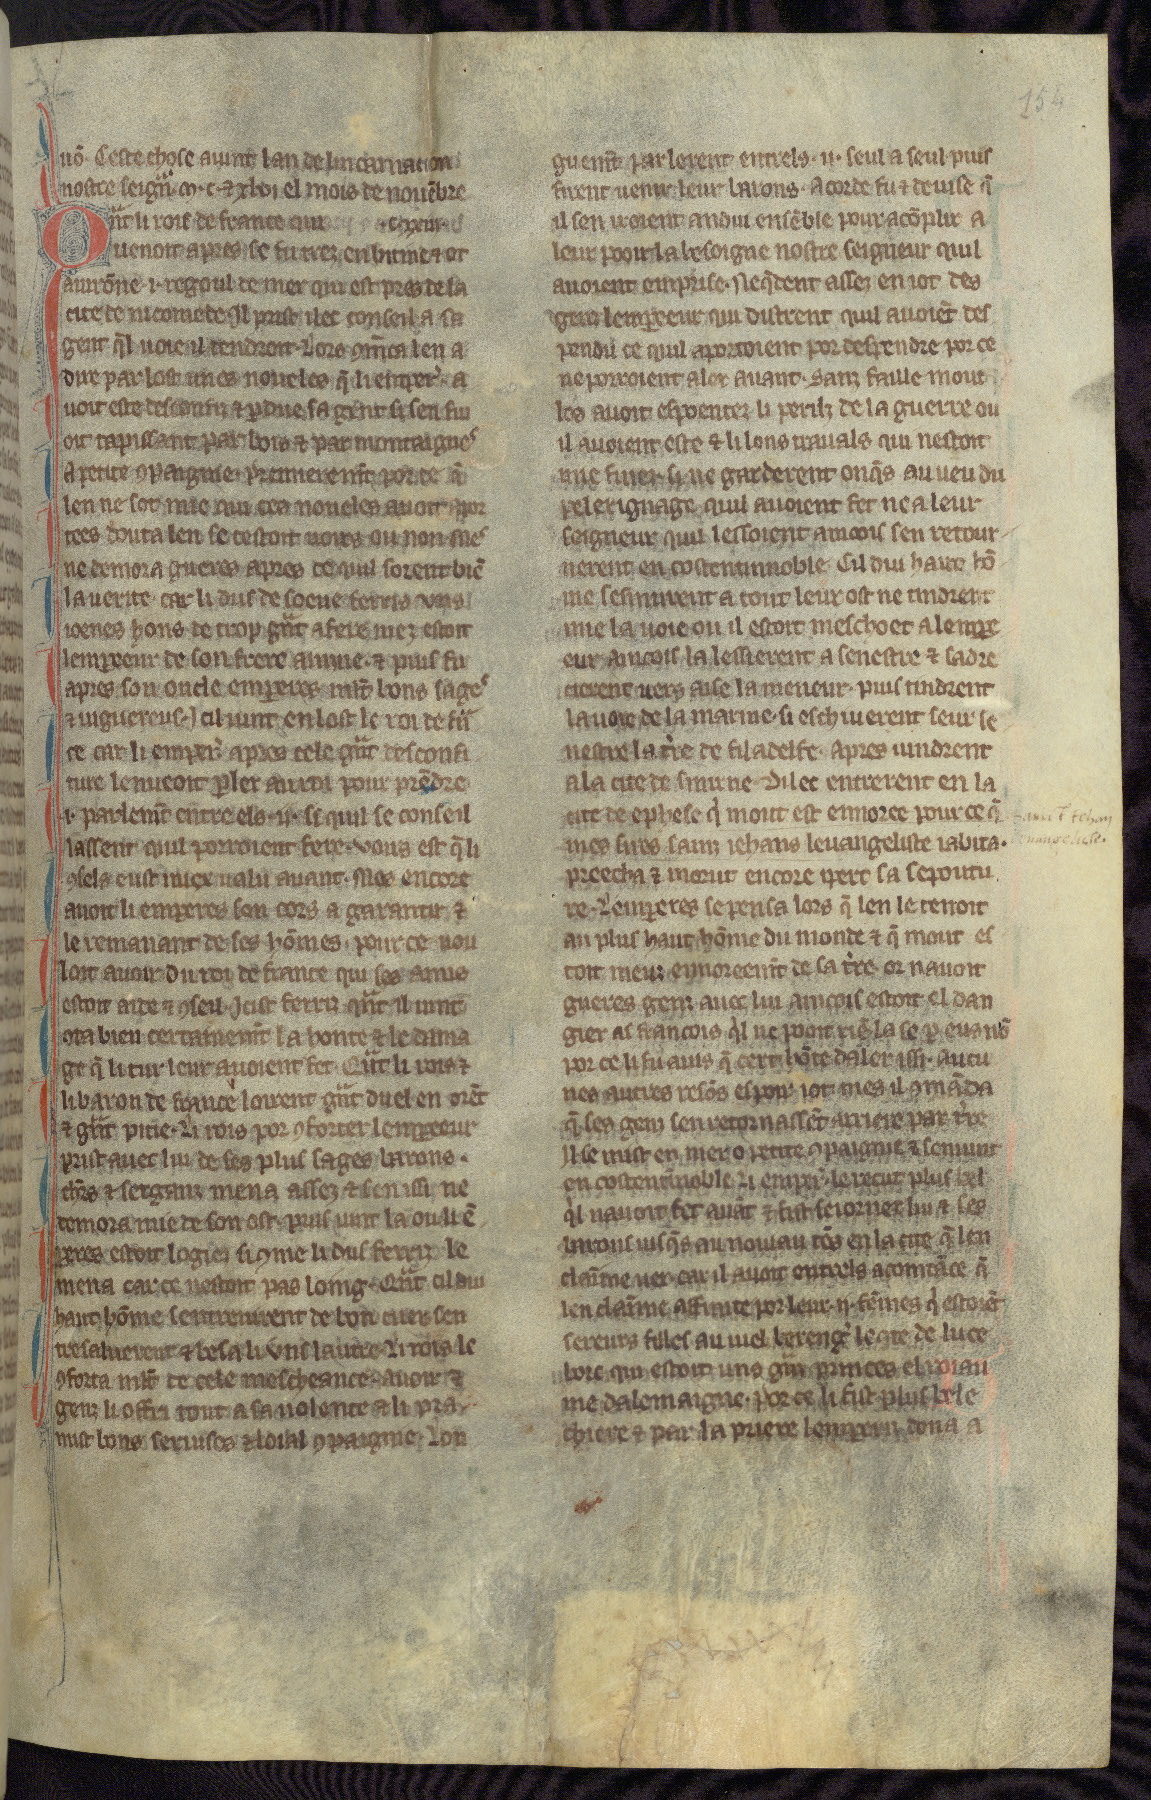 154
uō. Ceste chose avint lan de lincarnacion
nostre seign̄r m. c. et xlvi el mois de novēbre
Qn̄t li rois de france cui
venoit apres se fu trez en bitinie et ot
avirōne .i. regoul de mer qui est pres de la
cite de nicomede. Jl prist ilec conseil a sa
gent q̄l voie il tendroit. Lors 9m̄ca len a
dire par lost unes noveles q̄ li emper̄. a
voit este desconfiz et p̄due sa gent si sen fui
oit tapissant par bois et par montaignes
a petite 9paignie. Premierem̄t por ce q̄
len ne sot mie qui ces noveles avoit apor
tees douta len se cestoit voirs ou non mes
ne demora gueres apres ce quil sorent biē
la verite. car li dus de soeve ferris uns
ioenes hons de trop gn̄t afere niez estoit
lempereur de son frere ainzne. et puis fu
apres son oncle emperes ml̄t bons sages
et viguereus. Icil vint en lost le roi de frā
ce car li emper̄ apres cele gn̄t desconfi
ture lenveoit p̄ler au roi pour prēdre
.i. parlem̄t entre els .ii. si quil se conseil
lassent quil porroient fere. voirs est q̄ li
9sels eust miex valu avant. Mes encore
avoit li emperes son cors a garantir. et
le remanant de ses hōmes. pour ce vou
loit avoir du roi de france qui ses amis
estoit aide et 9seil. Icist ferriz qn̄t il vint
9ta bien certainem̄t la honte et le dama
ge q̄ li tur leur avoient fet. Qn̄t li rois et
li baron de france loirent gn̄t duel en orēt
et gn̄t pitie. Li rois por 9forter lempereur
prist avec lui de ses plus sages barons.
ch̄rs et serganz mena assez et sen issi. ne
demora mie de son ost. puis vint la ou li ē
peres estoit logiez si 9me li dus ferriz le
mena car ce nestoit pas loing. Qn̄t cil dui
haut hōme sentrevirent de bon cuer sen
tresaluerent et besa li uns lautre. Li rois le
9forta ml̄t de cele mescheance. avoir et
genz li offri tout a sa volente et li pra
mist bons servises et loial 9paignie. Lon
guem̄t parlerent entrels .ii. seul a seul puis
firent venir leur barons. Acorde fu et devise q̄
il sen iroient andui ensēble pour acōplir a
leur pooir la besoigne nostre seigneur quil
avoient emprise. Neq̄dent assez en iot des
genz lempereur qui distrent quil avoiēt des
pendu ce quil aportoient por despendre por ce
ne porroient aler avant. Sanz faille mout
les avoit espoentez li perilz de la guerre ou
il avoient este et li lons travals qui nestoit
mie finez. si ne garderent onq̄s au veu du
pelerignage quil avoient fet ne a leur
seigneur quil lessoient aincois sen retour
nerent en costentinnoble. Cil dui haute hō
me sesmurent a tout leur ost ne tindrent
mie la voie ou il estoit meschoet a lempe
eur aincois la lessierent a senestre et sadre
cierent vers aise la meneur. puis tindrent
la voie de la marine. si eschiverent seur se
nestre la t̄re de filadelfe. Apres vindrent
a la cite de smirne. Dilec entrerent en la
cite de ephese q̄ mout est ennoree pour ce q̄
mes sires sainz iehans levangeliste i abita.
preecha et morut encore ipert sa sepoutu
re. Lemperes se pensa lors q̄ len le tenoit
au plus haut hōme du monde et q̄ mout es
toit menez ennoreem̄t de sa t̄re or navoit
gueres genz avec lui aincois estoit el dan
gier as francois q̄l ne pooit riē la se p̄ eus nō
por ce li fu avis q̄ cert hōte daler issi. aucu
nes autres resōs espoir iot mes il 9māda
q̄ ses genz sen retornassēt arriere par t̄re
Jl se mist en mer o petite 9paignie et sen vint
en costentinoble. Li emper̄. le recut plus bel
q̄l navoit fet avāt et fist seiorner lui et ses
barons iusq̄s au nouviau tēs en la cite q̄ len
claīme ver. car il avoit entrels acointāce q̄
len claīme affinite por leur .ii. fēmes q̄ estoiēt
sereurs filles au viel berengͥ le 9te de luce
borc qui estoit uns gn̄z princes el roiau
me dalemaigne. Por ce li fist plus bele
chiere et par la priere lemperiz dona a